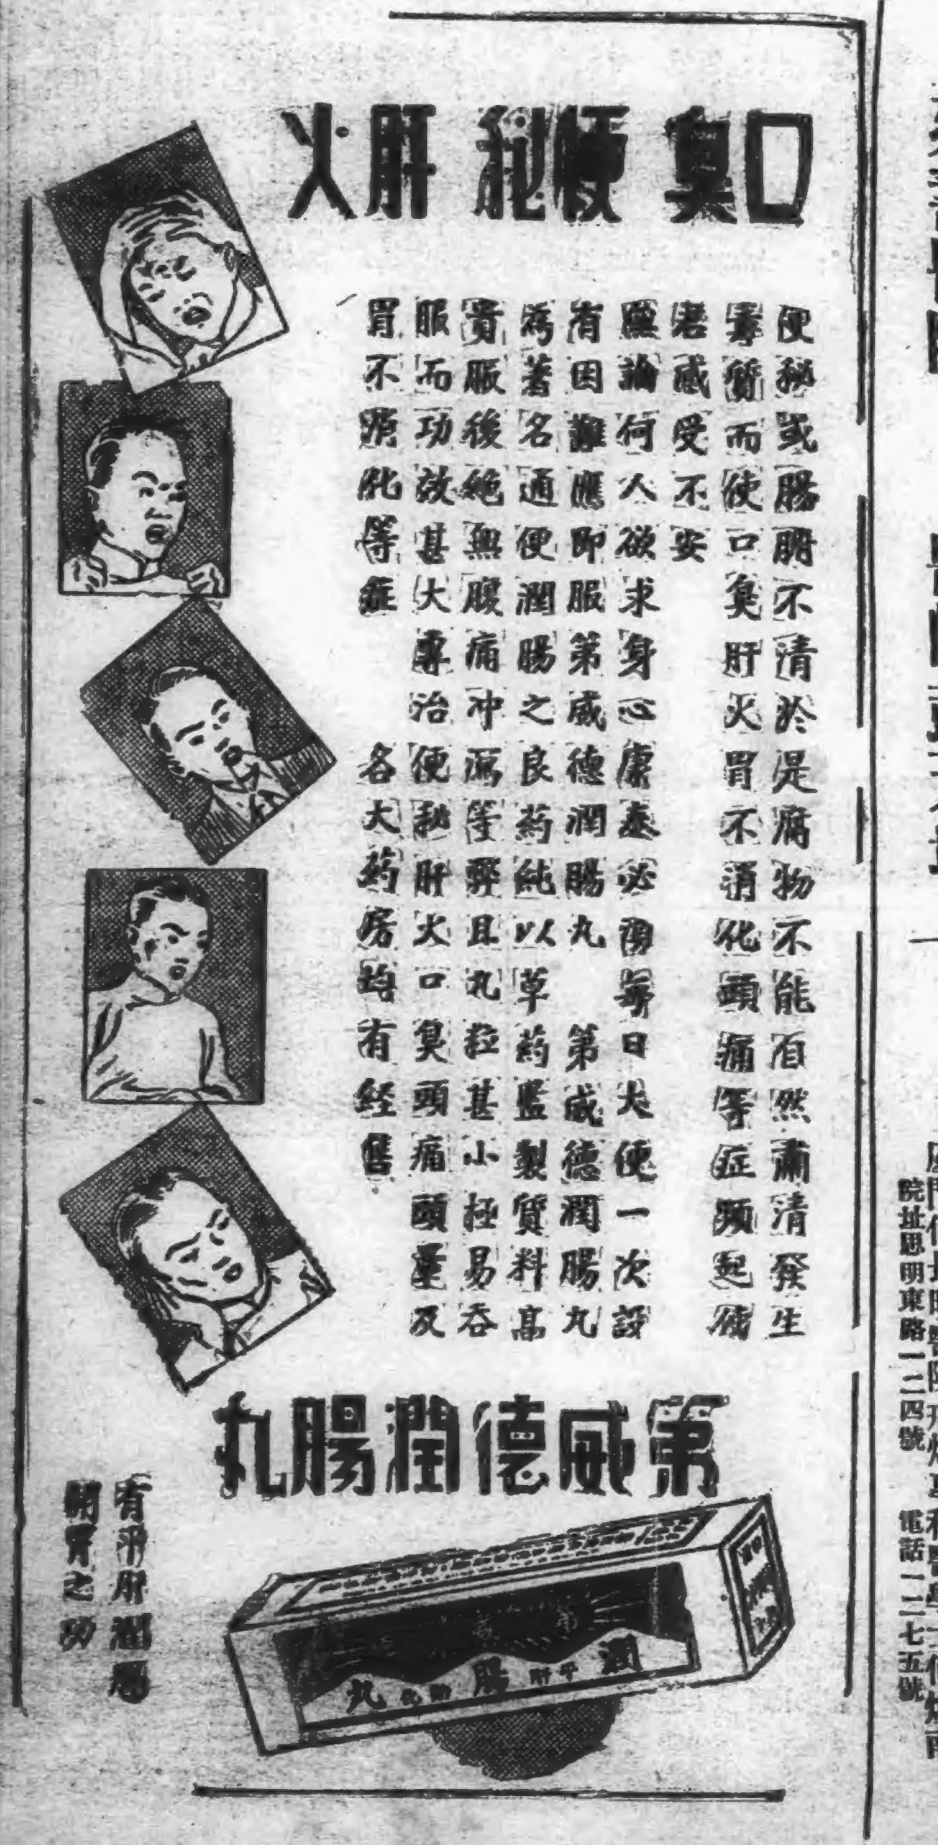 口臭 便秘 肝火
便秘或腸腑不清於是腐物不能自然肅清發生
毒質而使口臭肝火胃不消化頭痛等症頻起使
君感受不安
無論何人欲求身心康泰必須每日大便一次設
有困難應即服第威德潤腸丸 第威德潤腸丸
為著名通便潤腸之良葯純以草葯監製質料高
貴服後絕無腹痛冲瀉等弊且丸粒甚小極易吞
服而功效甚大專治便秘肝火口臭頭痛頭暈及
胃不消化等症 各大葯房均有經售
第威德潤腸丸
有平肝潤腸
開胃之功
潤腸丸
平肝
助化
院址思明東路一二四號 電話一二七五號